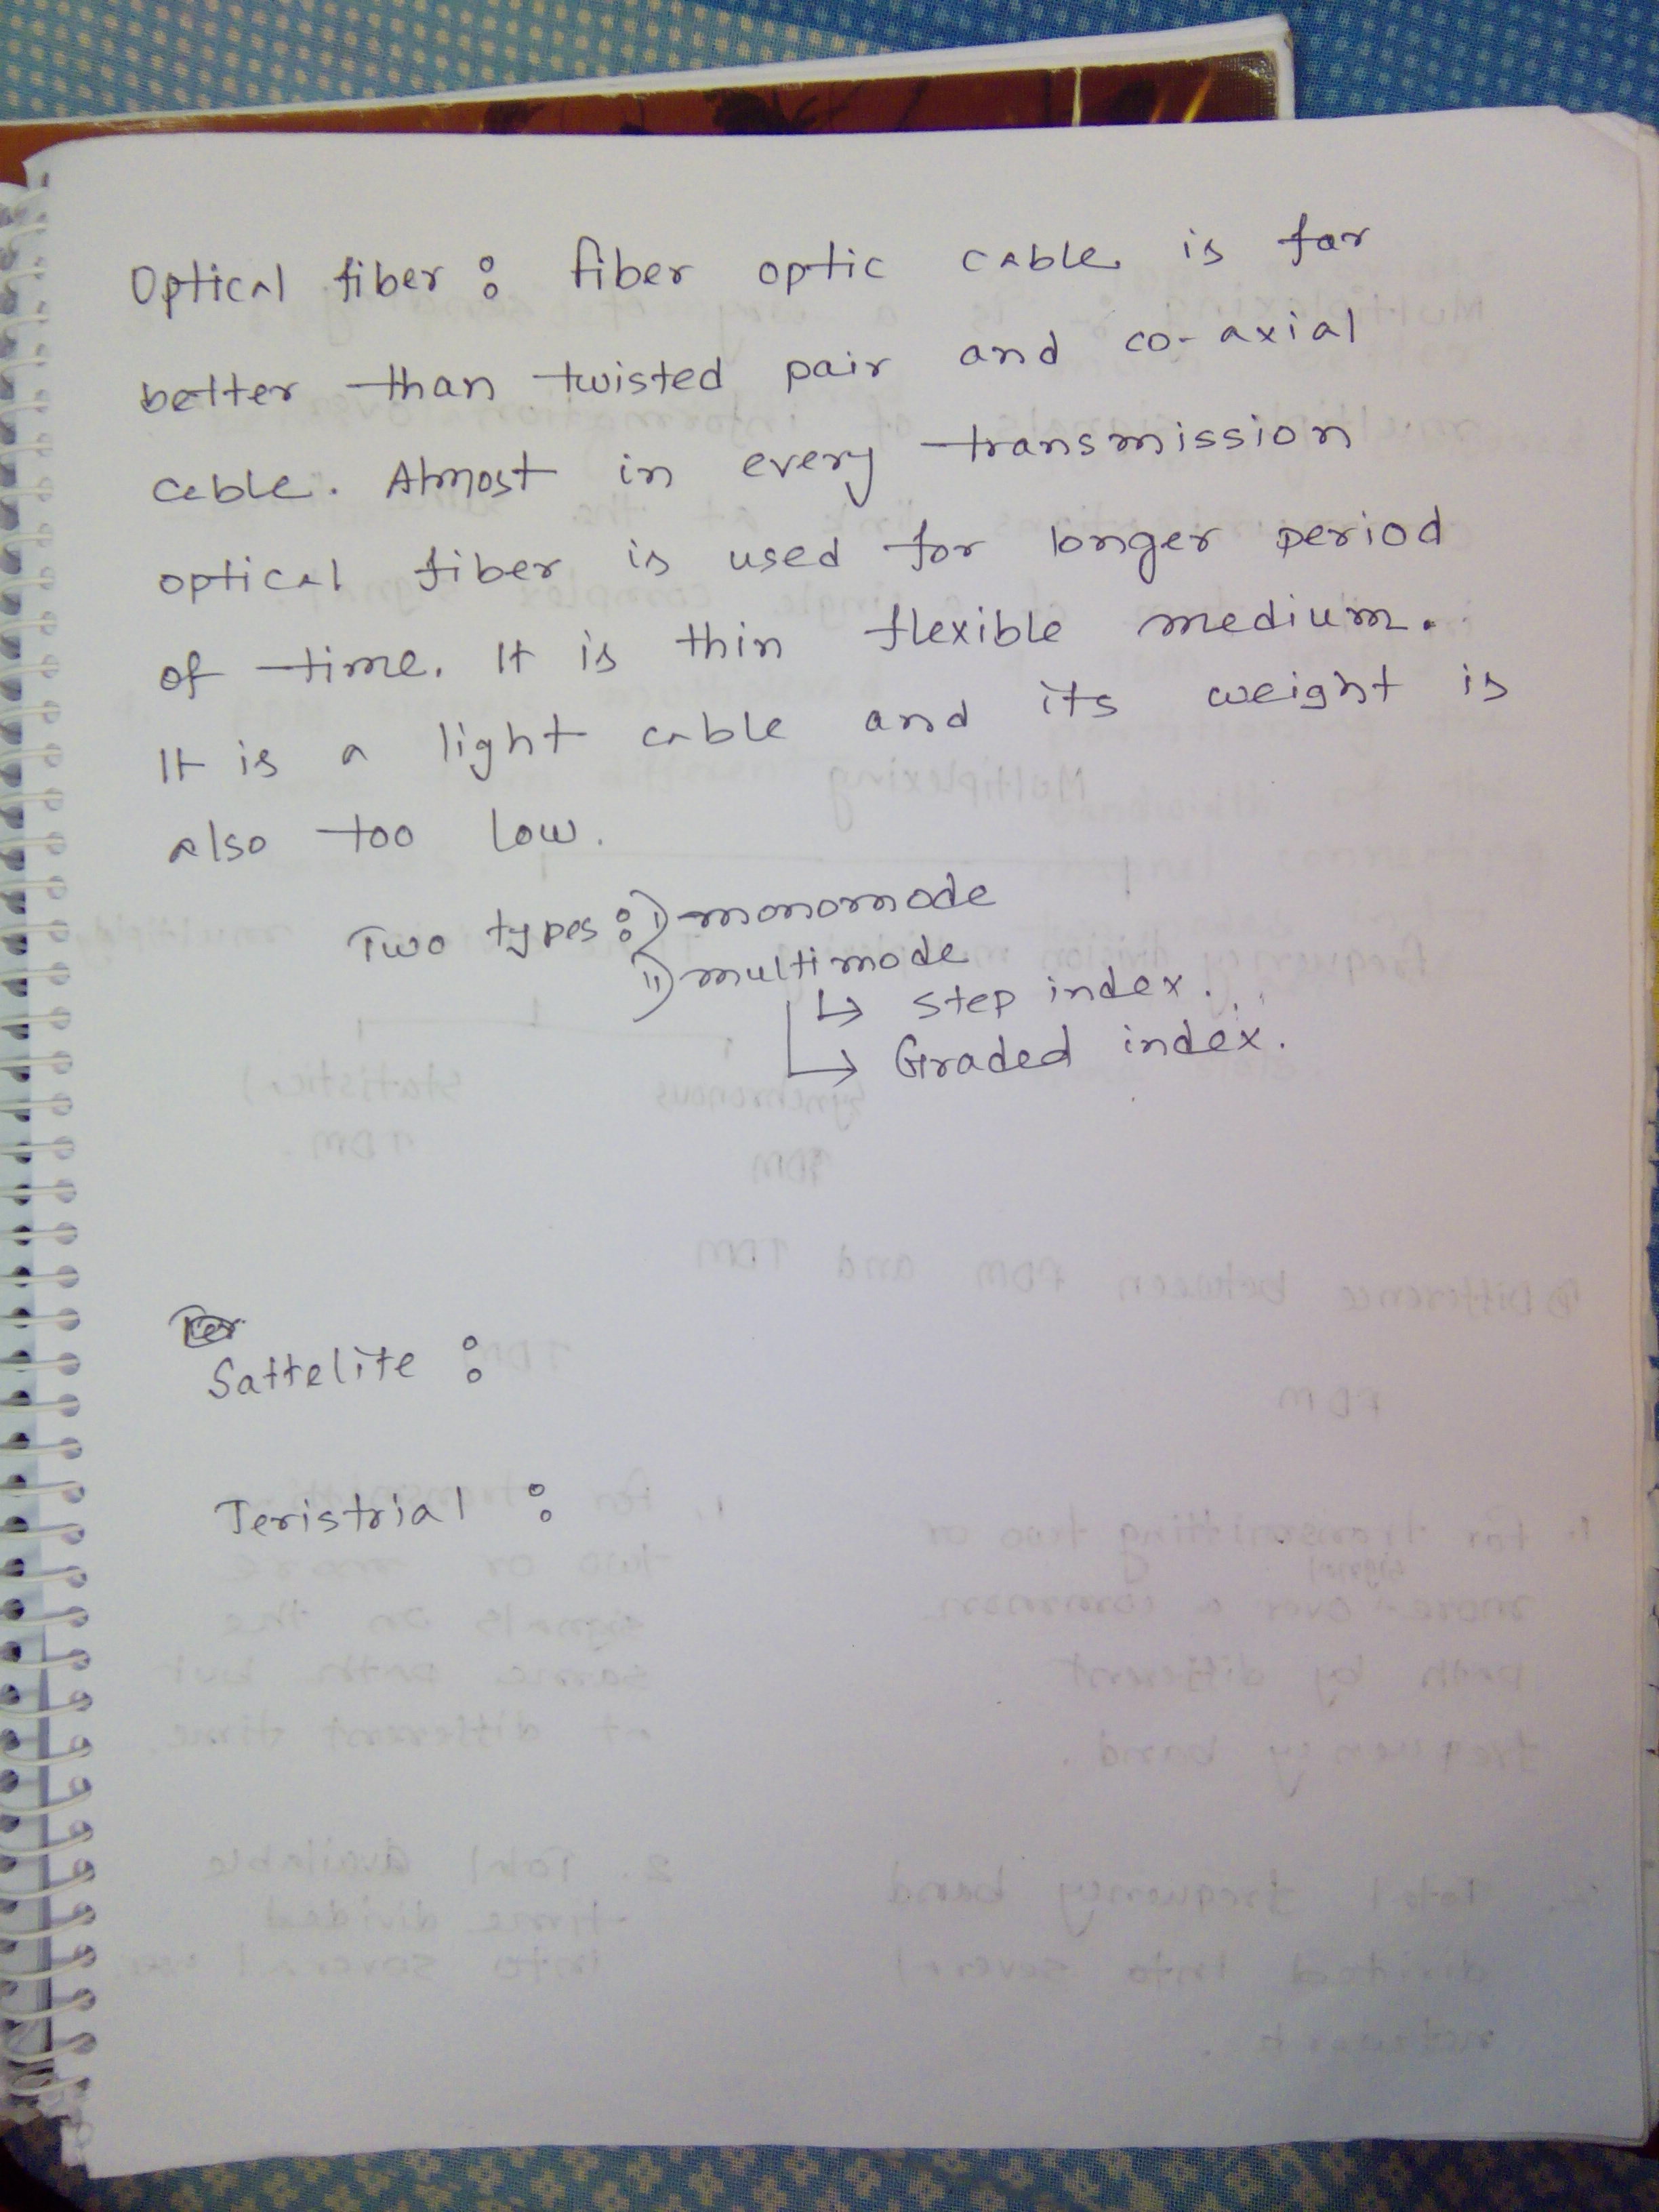 Optical fiber : fiber optic cable is far
better than twisted pair and co-axial
cable. Almost in every transmission
optical fiber is used for longer period
of time. It is thin flexible medium.
It is a light cable and its weight is
also too low.
Two types : i) monomode
ii) multimode
↳ step index.
→ Graded index.
Sattelite :
Teristrial :